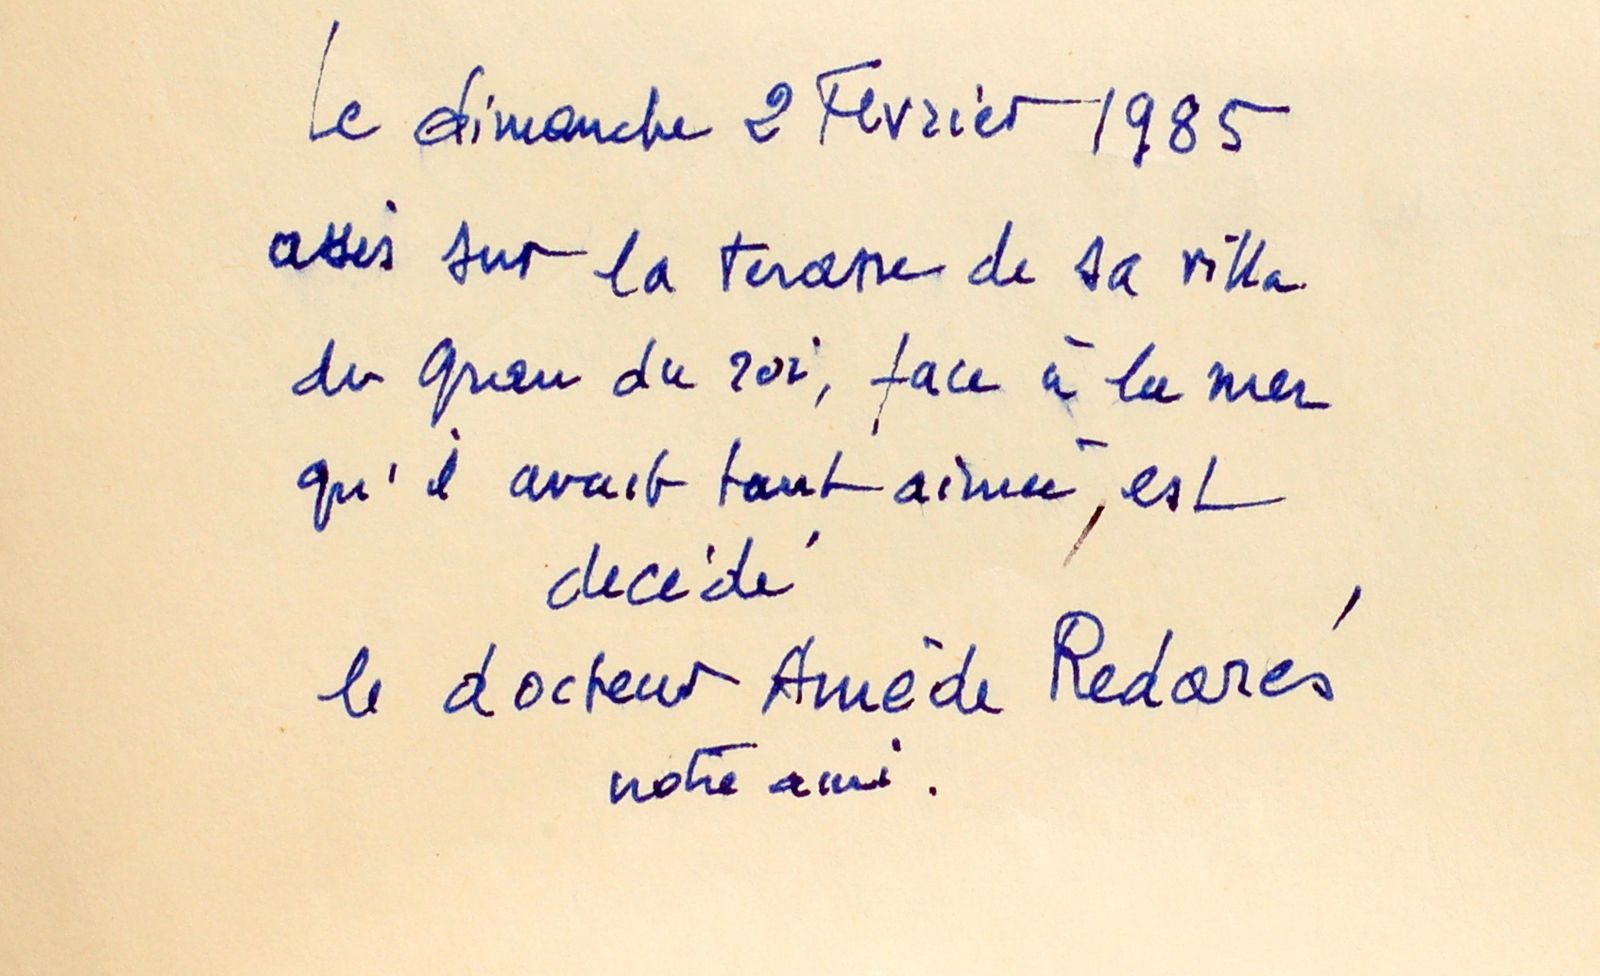 Le dimanche 2 Février 1985
assis sur la terasse de sa villa
du Grau du roi, face à la mer
qu'il avait tant aimée, est
decédé
le docteur Améde Redarés
notre ami.